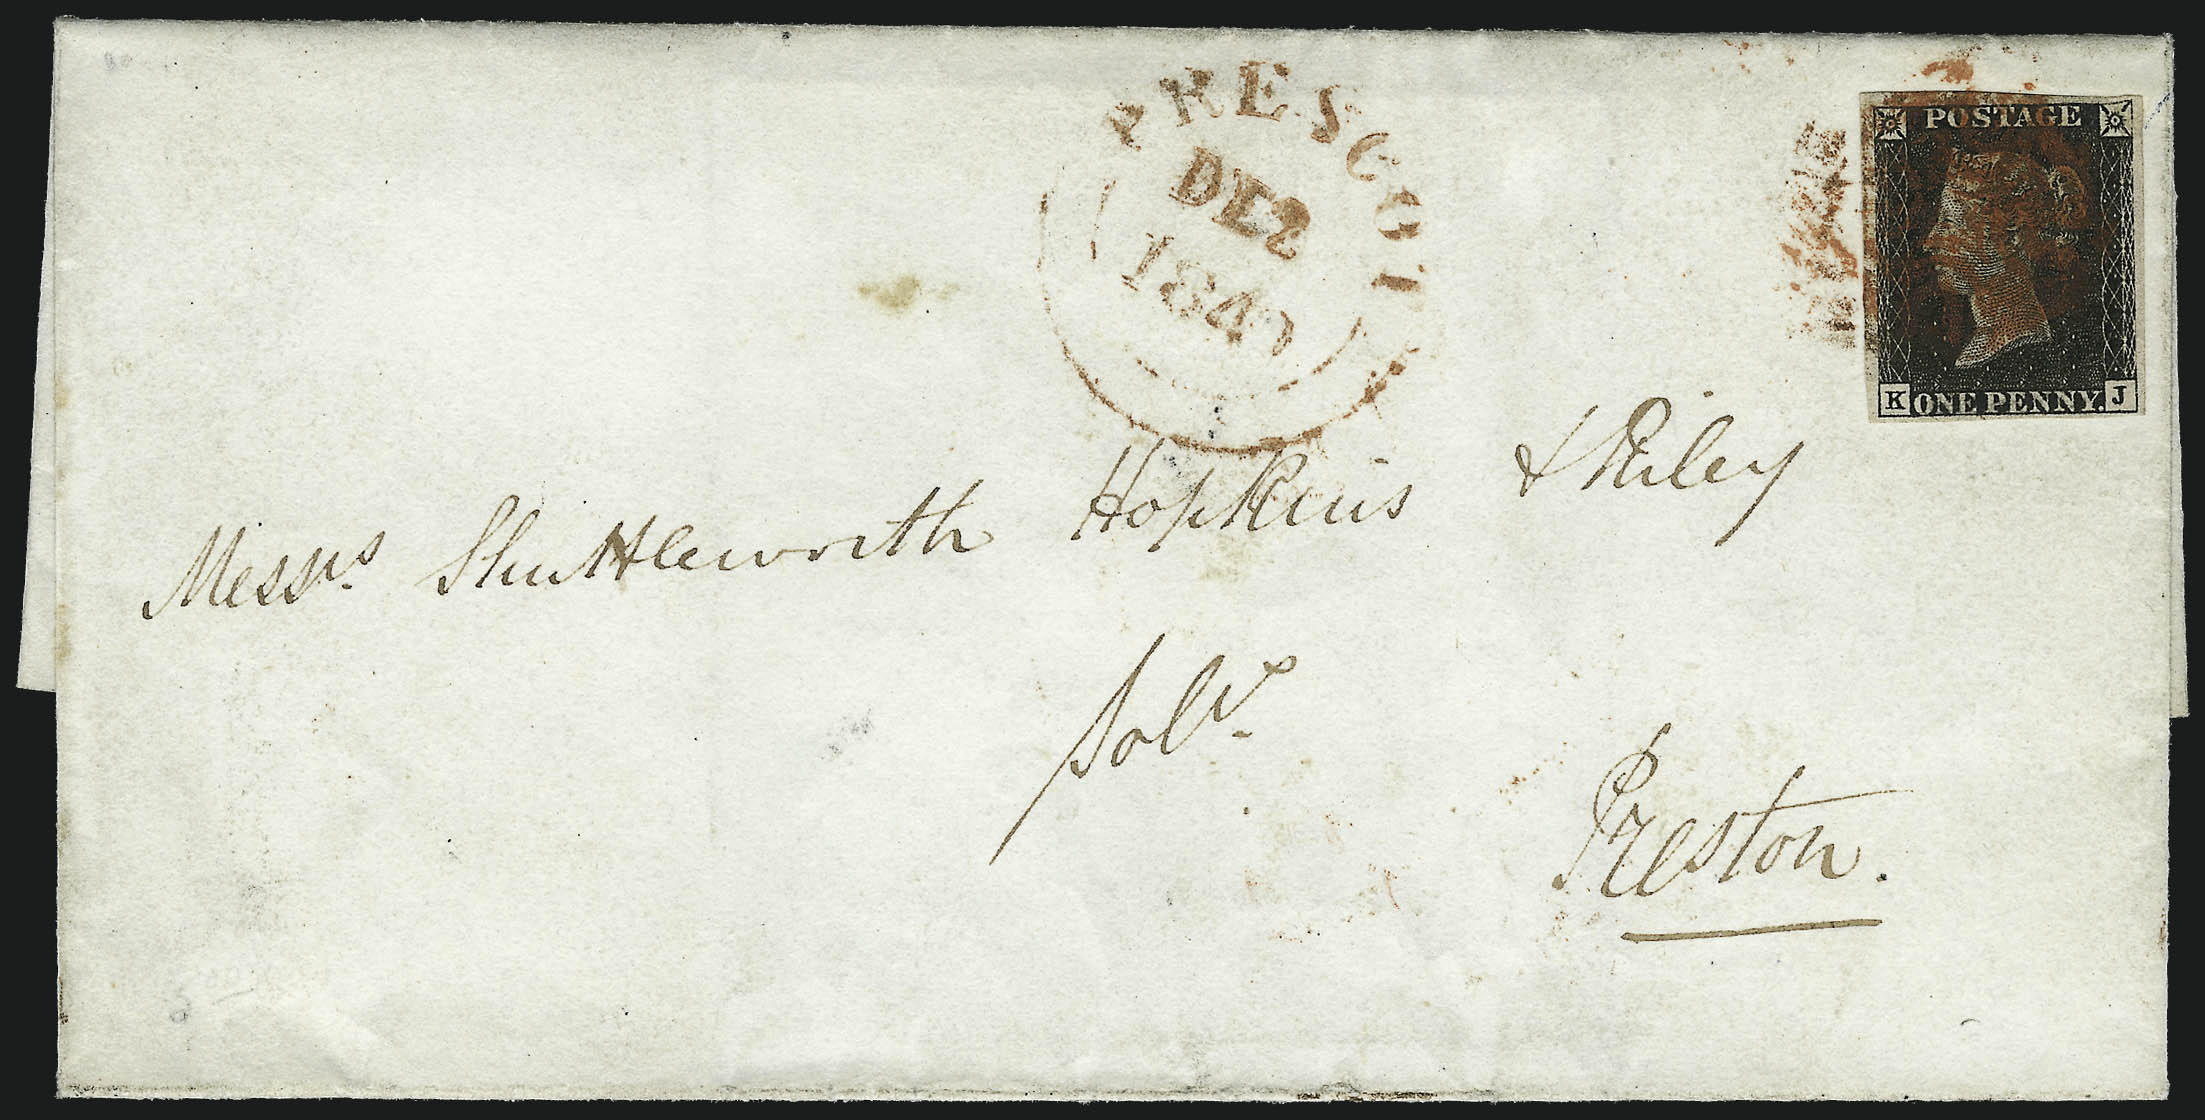 PRESCOT
DE 2
1840
POSTAGE
K ONE PENNY. J
Messrs. Shuttleworth Hopkins & Riley
Solrs.
Preston.